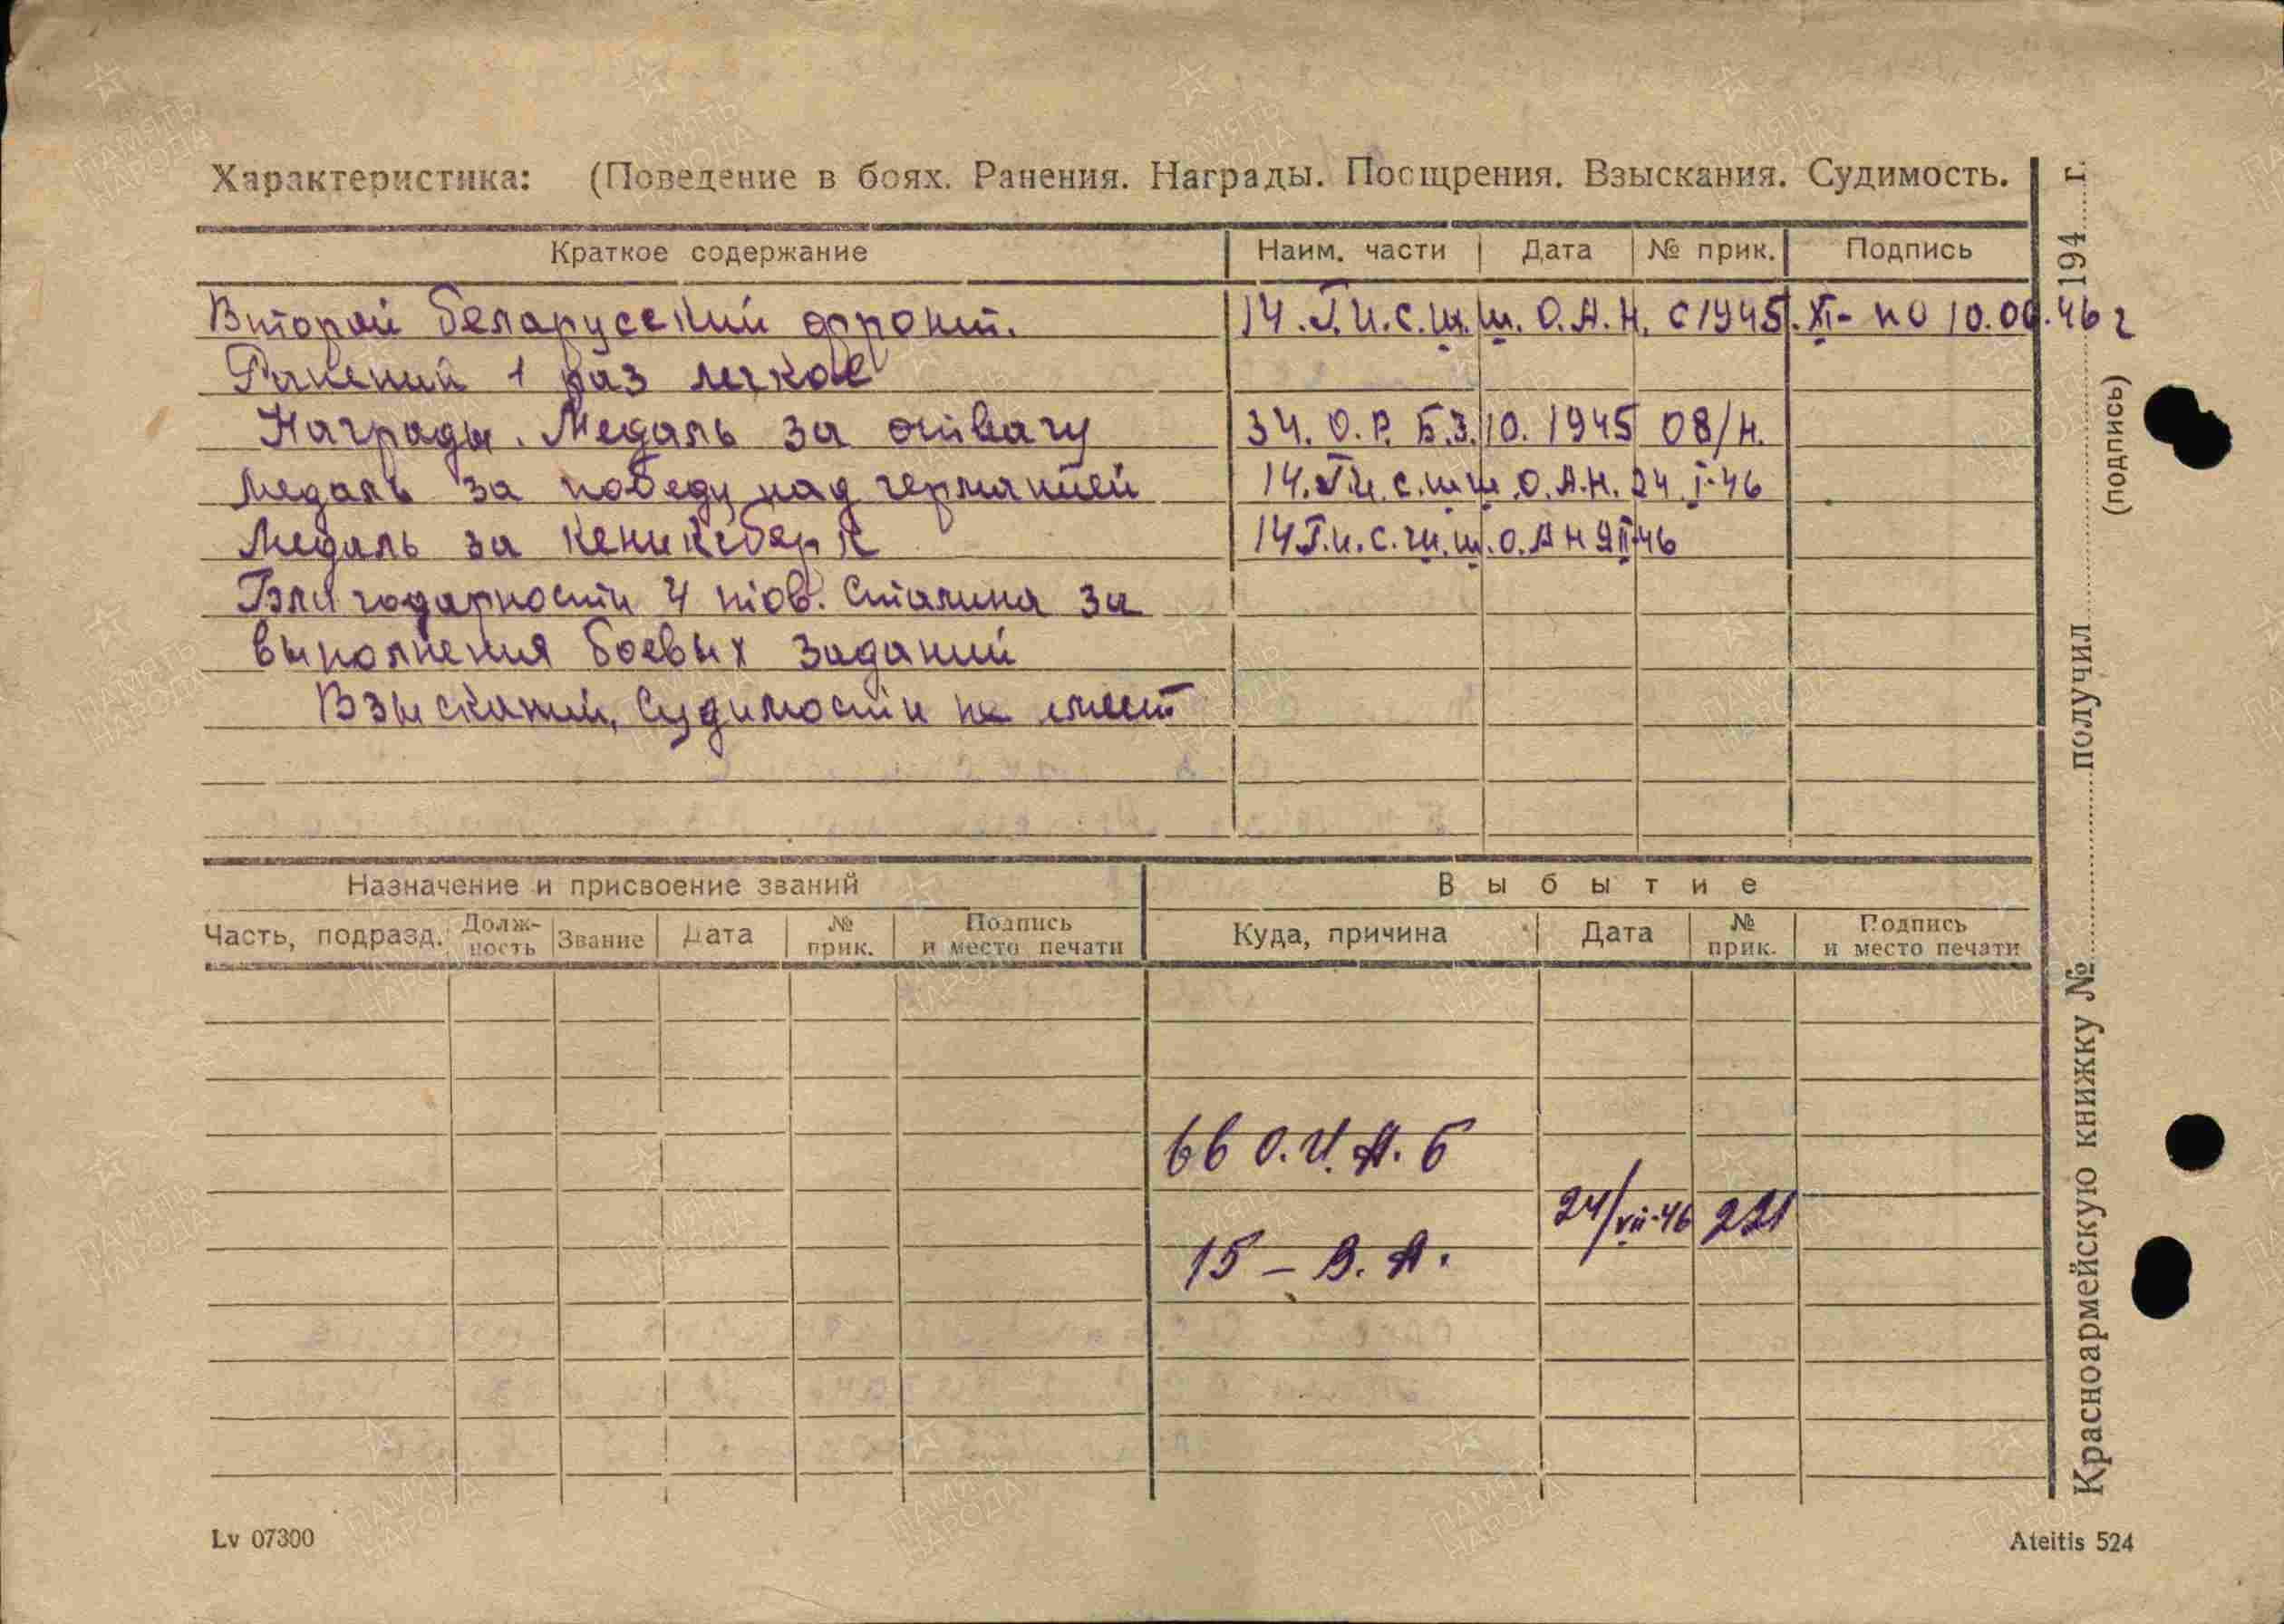 Характеристика: (Поведение в боях. Ранения. Награды. Поощрения. Взыскания. Судимость.
Краткое содержание Наим. части Дата № прик. Подпись
Второй беларусский фронт. 14.Г.И.С.Ш.Ш.О.А.Н. с 1945.XI- по 10.06.46 г
Ранений 1 раз легкое
Награды. Медаль за отвагу 34.О.Р.Б.3.10.1945 08/Н.
Медаль за победу над германией 14.Г.И.С.Ш.Ш.О.А.Н. 24.I-46
Медаль за кениксберк 14Г.И.С.Ш.Ш.О.А Н 9II-46
Благодарности 4 тов. Сталина за
выполнения боевых заданий
Взысканий, судимости не имеет
Назначение и присвоение званий Выбытие
Часть, подразд. Долж-ность Звание Дата № прик. Подпись и место печати Куда, причина Дата № прик. Подпись и место печати
66 О.И.А.Б
24/VII-46 221
15 – В.А.
Lv 07300
Ateitis 524
Красноармейскую книжку № получил 194 г.
(подпись)
ПАМЯТЬ НАРОДА